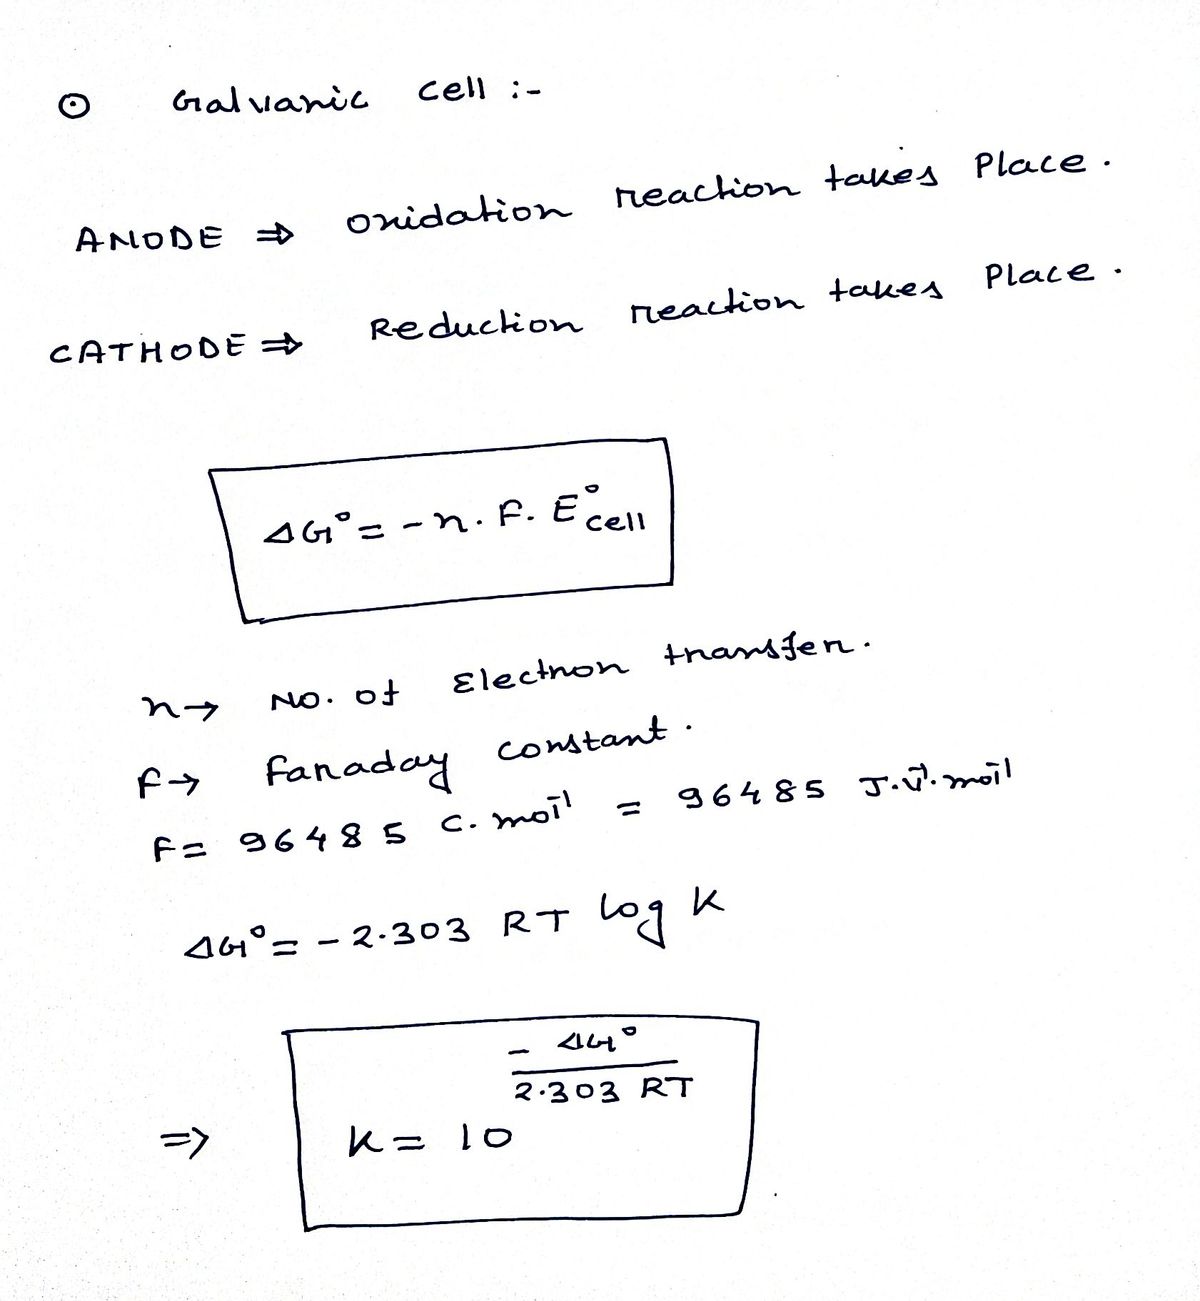 ⊙ Galvanic cell :-
ANODE ⇒ oxidation reaction takes Place.
CATHODE ⇒ Reduction reaction takes Place.
ΔG° = -n. F. E°cell
n → No. of Electron transfer.
F → Faraday constant.
F = 96485 C. mol⁻¹ = 96485 J.V⁻¹. mol⁻¹
ΔG° = - 2.303 RT log K
- ΔG°
2.303 RT
⇒ K = 10